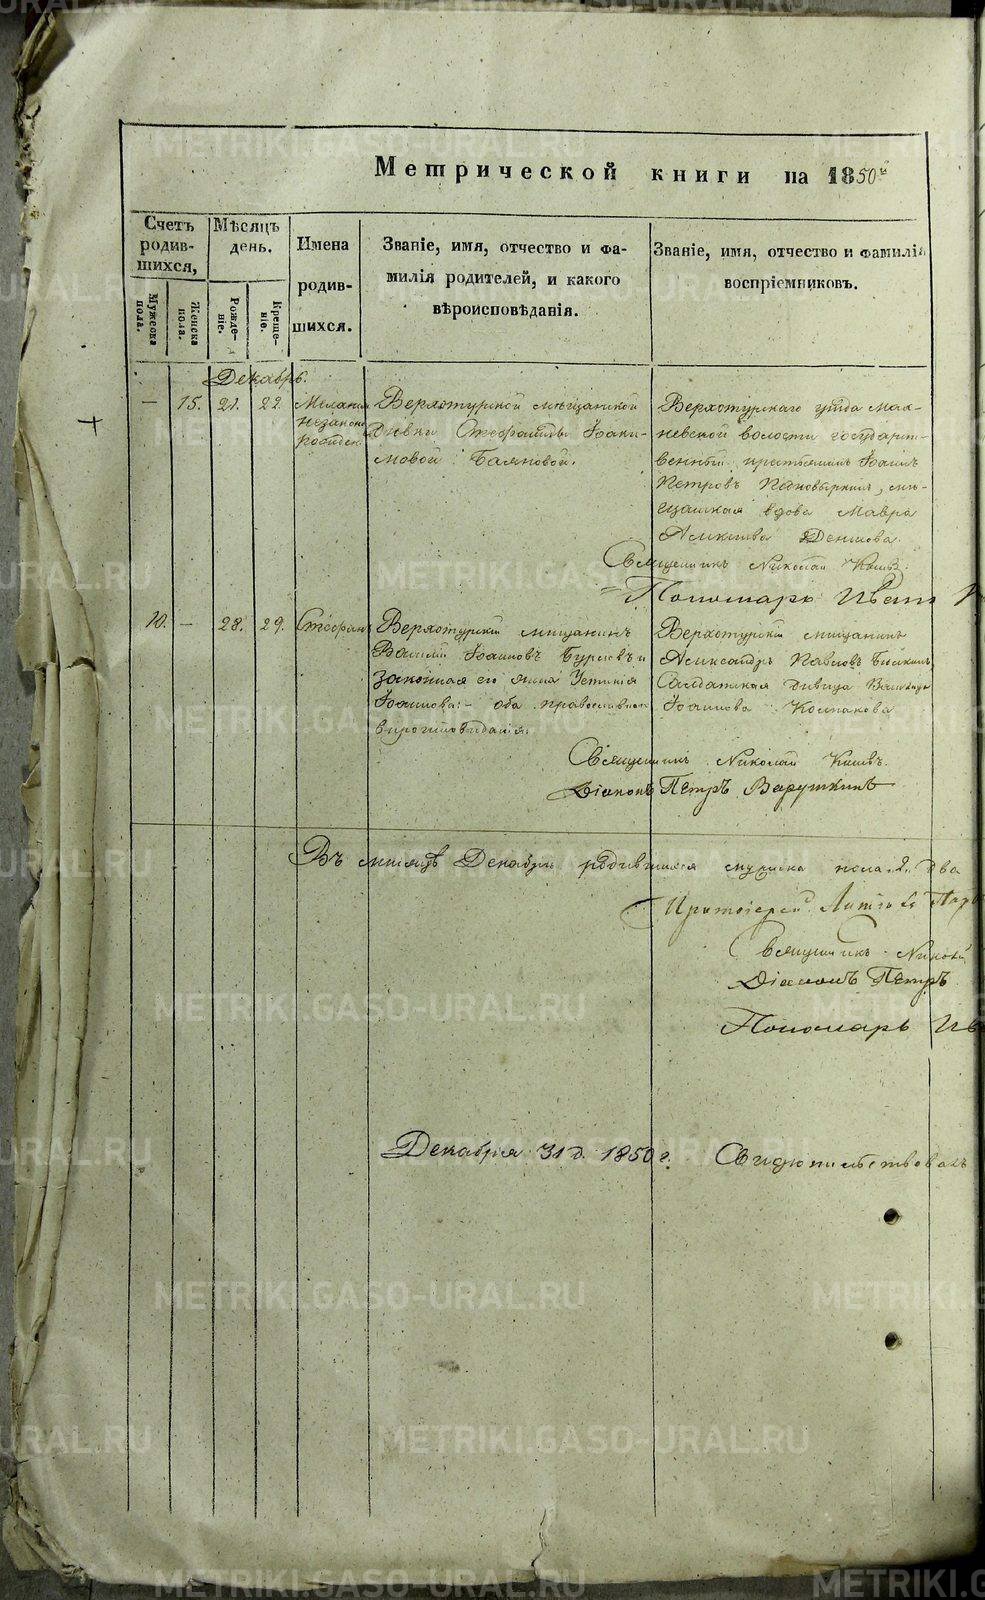 Метрической книги на 1850й
Счетъ родив-шихся,
Мужеска пола.
Женска пола.
Мѣсяцъ день.
Рожде-ніе.
Креще-ніе.
Имена
родив-
шихся.
Званіе, имя, отчество и фа-
милія родителей, и какого
вѣроисповѣданія.
Званіе, имя, отчество и фамилія
воспріемниковъ.
Декабрь.
— 15. 21. 22. Меланія
незаконо
рожден.
Верхотурской мѣщанской
Дѣвки Стефаниды Іоаки-
мовой Баяновой.
Верхотурскаго уѣзда Мах-
невской волости государст-
венный крестьянинъ Іоаннъ
Петровъ мѣ-
щанская вдова Мавра
Денисова.
Священникъ Николай
Пономарь Иванъ
10. — 28. 29. Стефанъ
Верхотурскій мѣщанинъ
Василій Іоанновъ и
законная его жена Устинія
Іоаннова:- оба православнаго
вѣроисповѣданія.
Верхотурскій мѣщанинъ
Александръ Павловъ
Салдатская дѣвица
Іоаннова Колпакова
Священникъ Николай
Діаконъ Петръ Варушкинъ
Въ мѣсяцѣ Декабрѣ родившихся мужеска пола .2. два
Протоіерей
Священникъ Николай
Діаконъ Петръ
Пономарь Ив
Декабря 31 д. 1850 г. Свидѣтельствовалъ
METRIKI.GASO-URAL.RU